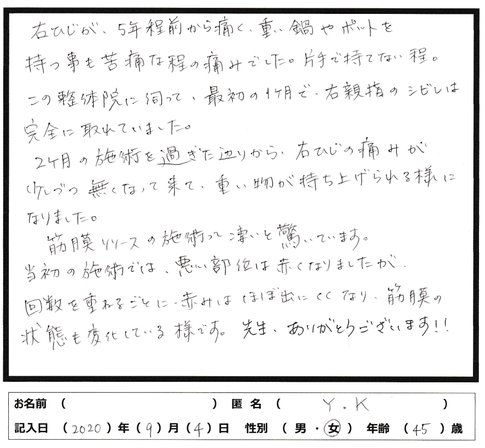 右ひじが、5年程前から痛く、重い鍋やポットを
持つ事も苦痛な程の痛みでした。片手で持てない程。
この整体院に伺って、最初の1ヶ月で、右親指のシビレは
完全に取れていました。
2ヶ月の施術を過ぎた辺りから、右ひじの痛みが
少しづつ無くなって来て、重い物が持ち上げられる様に
なりました。
筋膜リリースの施術って凄いと驚いています。
当初の施術では、悪い部位は赤くなりましたが、
回数を重ねるごとに、赤みはほぼ出にくくなり、筋膜の
状態も変化している様です。先生、ありがとうございます!!
お名前 ( ) 匿名 ( Y.K )
記入日 (2020) 年 (9) 月 (4) 日 性別 (男・女) 年齢 (45) 歳